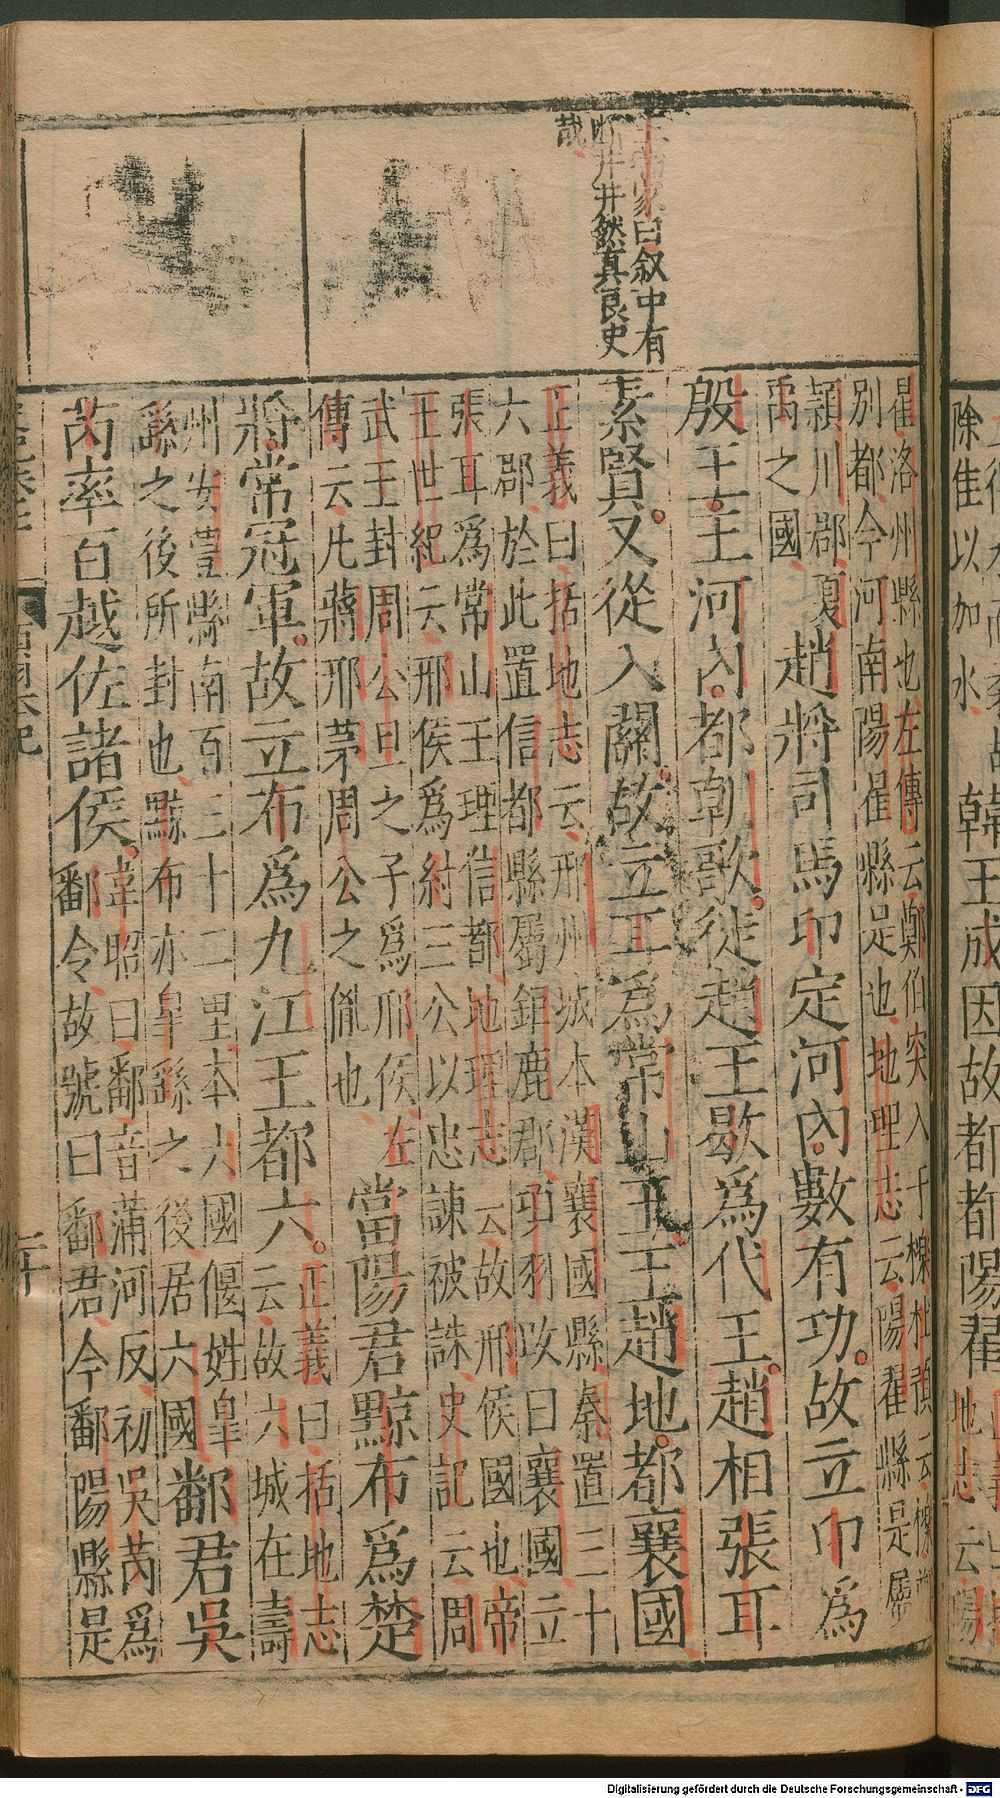 除隹以加水
韓王成因故都都陽翟
地志云陽
家曰叙中有
斷井井然真良史
哉
翟洛州縣也左傳云鄭伯突入于櫟杜預云櫟鄭
別都今河南陽翟縣是也地理志云陽翟縣是屬
潁川郡夏
禹之國
趙將司馬卬定河內數有功故立卬為
殷王王河內都朝歌徙趙王歇為代王趙相張耳
素賢又從入關故立耳為常山王王趙地都襄國
正義曰括地志云邢州城本漢襄國縣秦置三十
六郡於此置信都縣屬鉅鹿郡項羽改曰襄國立
張耳為常山王理信都地理志云故邢侯國也帝
王世紀云邢侯為紂三公以忠諫被誅史記云周
武王封周公旦之子為邢侯左
傳云凡蔣邢茅周公之胤也
當陽君黥布為楚
將常冠軍故立布為九江王都六
正義曰括地志
云故六城在壽
州安豐縣南百三十二里本六國偃姓皐
繇之後所封也黥布亦皐繇之後居六國
鄱君吳
芮率百越佐諸侯
韋昭曰鄱音蒲河反初吳芮為
鄱令故號曰鄱君今鄱陽縣是
本紀
二十
Digitalisierung gefördert durch die Deutsche Forschungsgemeinschaft - DFG